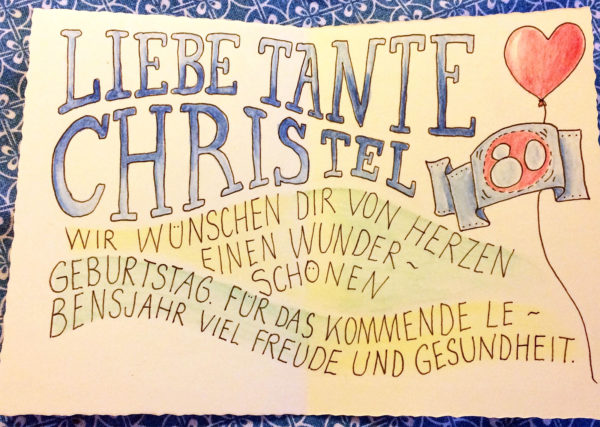 LIEBE TANTE
CHRISTEL
80
WIR WÜNSCHEN DIR VON HERZEN
EINEN WUNDER~
SCHÖNEN
GEBURTSTAG. FÜR DAS KOMMENDE LE~
BENSJAHR VIEL FREUDE UND GESUNDHEIT.